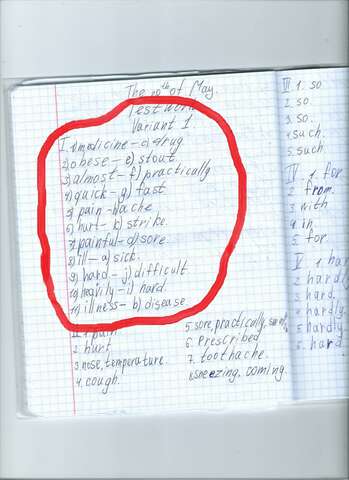 The of May.
Test work
Variant 1
I. 1) medicine – c) drug.
2) obese – e) stout.
3) almost – f) practically
4) quick – g) fast
5) pain – h) ache
6) hurt – k) strike.
7) painful – d) sore.
8) ill – a) sick.
9) hard – j) difficult
10) heavily – i) hard.
11) illness – b) disease.
II 1. pain
2. hurt
3. nose, temperature.
4. cough.
5. sore, practically,
6. Prescribed
7. toothache.
8. sneezing, coming.
III 1. so
2. so.
3. so.
4. such.
5. such.
IV. 1. for
2. from.
3. with
4. in
5. for
V 1 hard
2. hardly
3. hard.
4. hardly.
5. hardly
6. hard